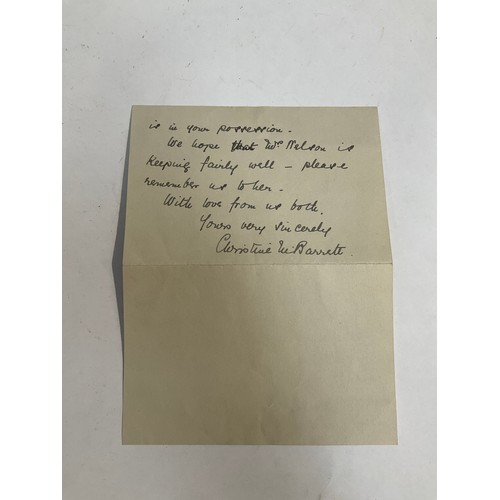 is in your possession.
We hope that Mrs Nelson is
keeping fairly well – please
remember us to her.
With love from us both.
Yours very sincerely
Christine M Barrett.